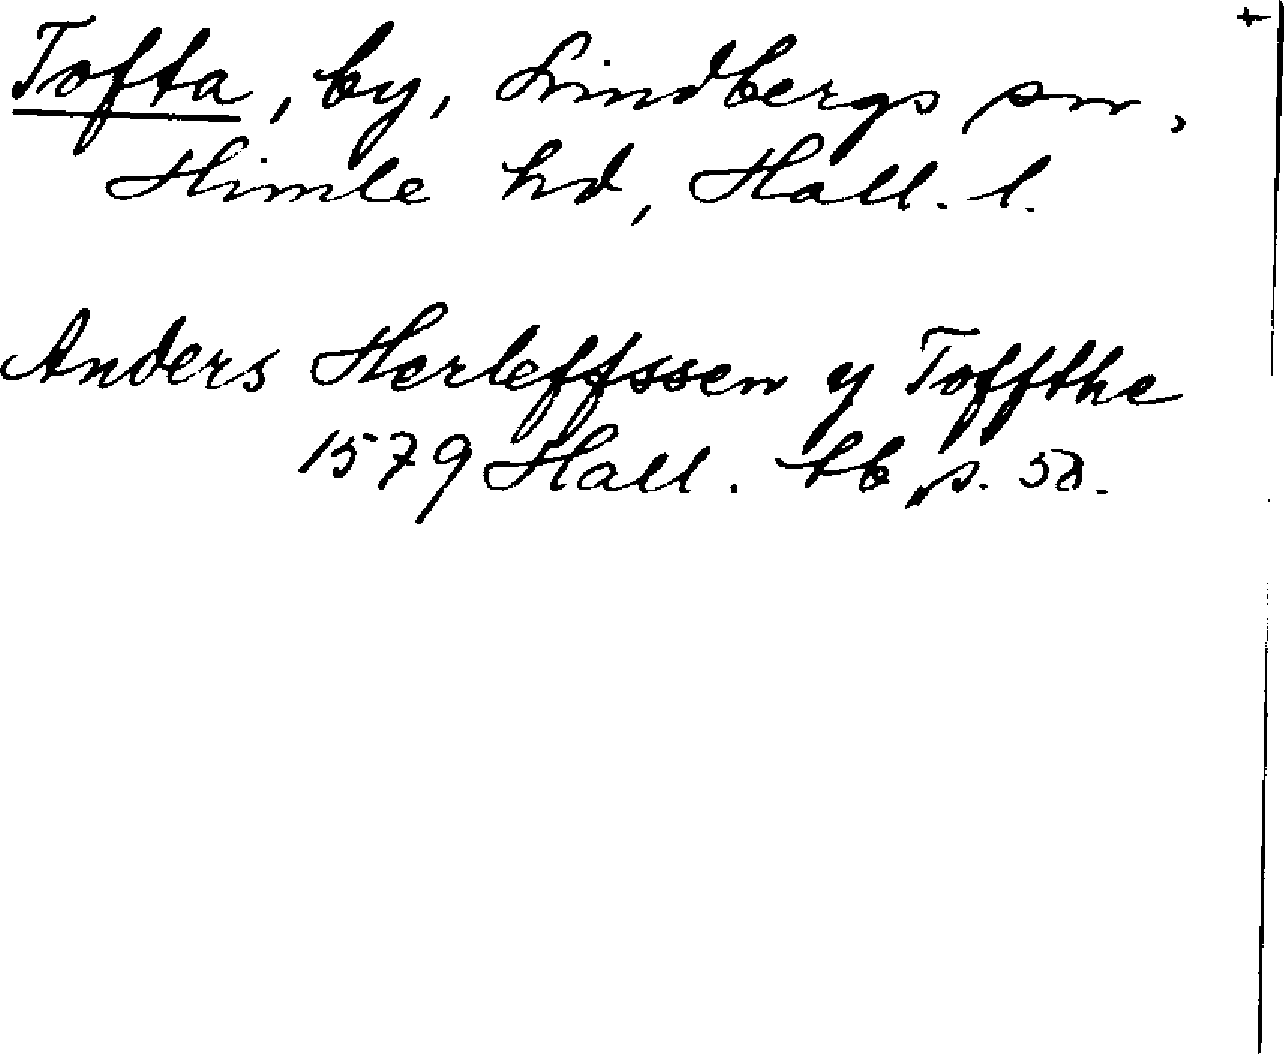 Tofta, by, Lindbergs sn,
Himle hd, Hall. l.
Anders Herleffssen y Toffthe
1579 Hall. tb s. 50.